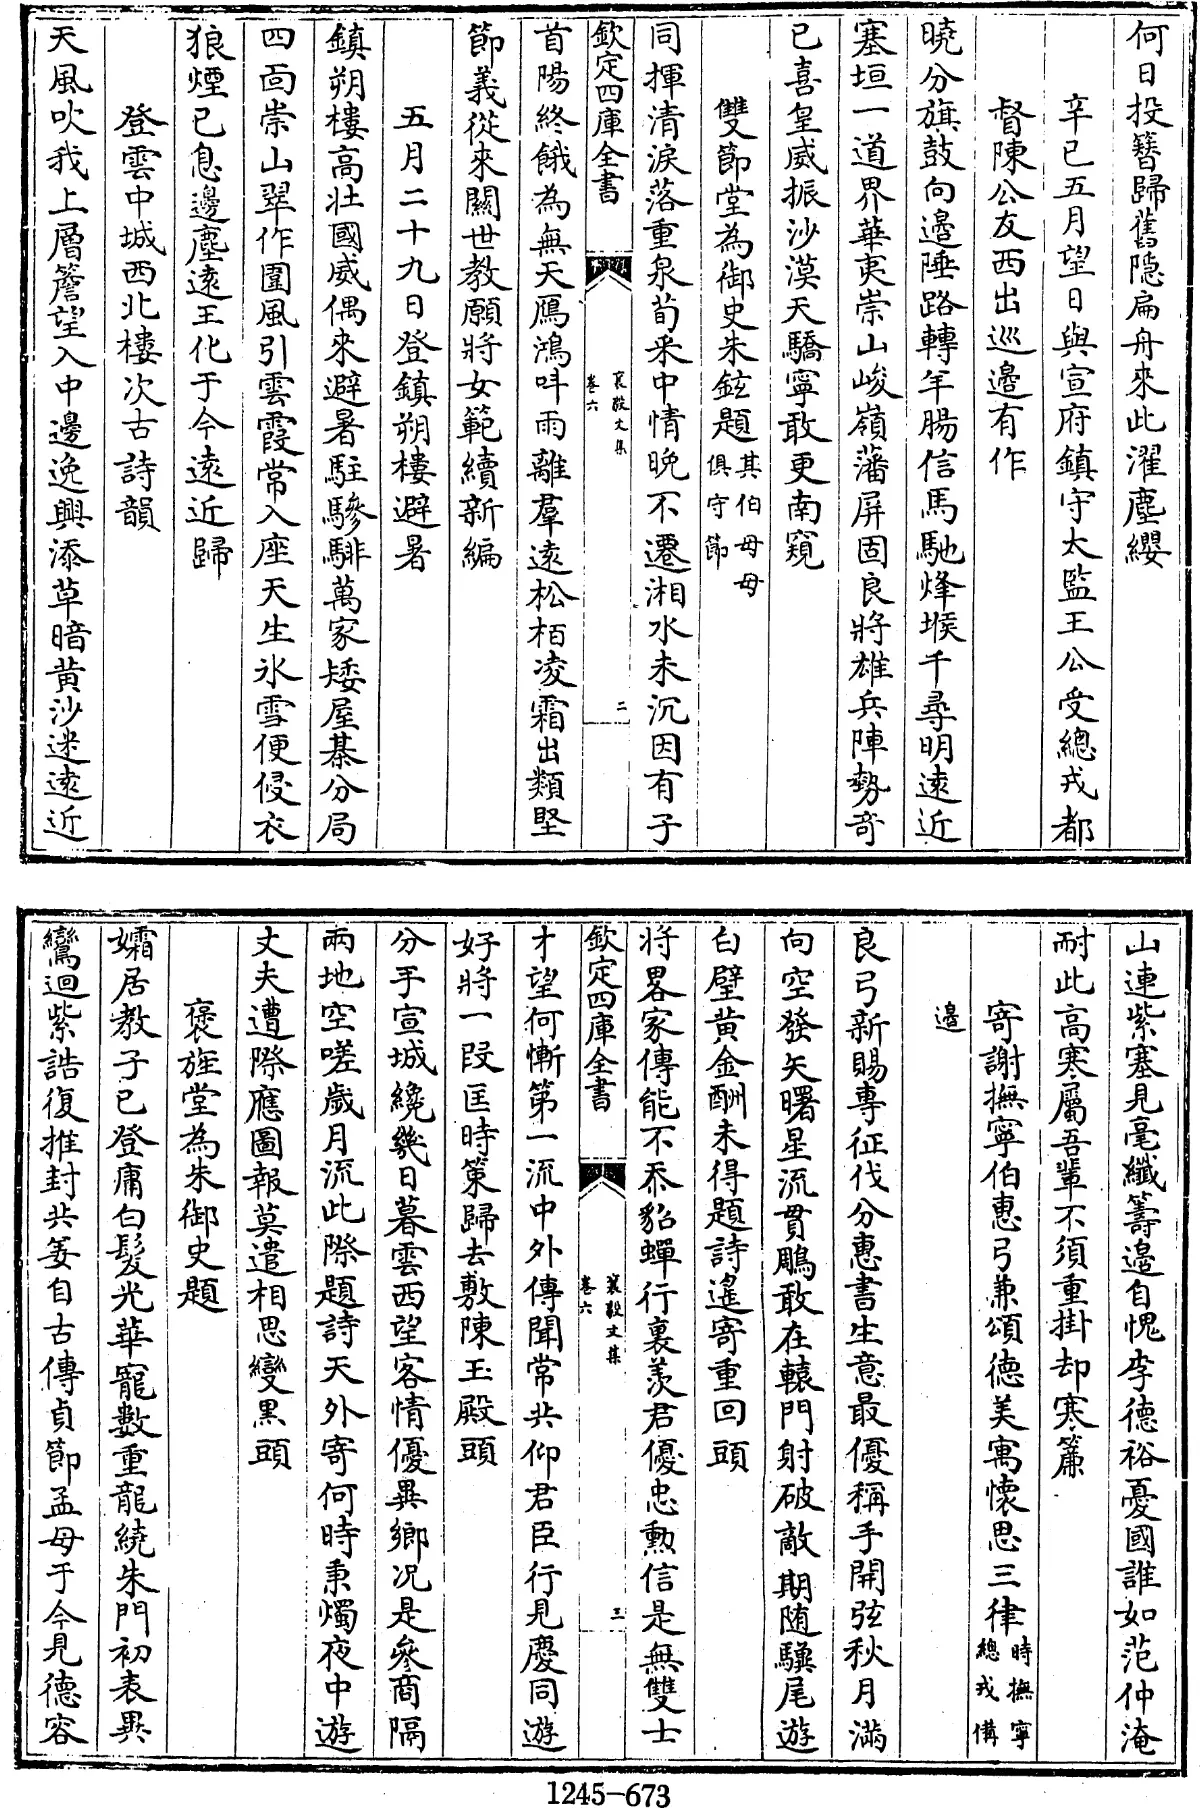 何日投簪歸舊隱扁舟來此濯塵纓
辛巳五月望日與宣府鎮守太監王公受總戎都
督陳公友西出巡邊有作
曉分旗鼓向邊陲路轉羊腸信馬馳烽堠千尋明遠近
塞垣一道界華夷崇山峻嶺藩屏固良將雄兵陣勢奇
已喜皇威振沙漠天驕寧敢更南窺
雙節堂為御史朱鉉題其伯母母俱守節
同揮清淚落重泉荀采中情晚不遷湘水未沉因有子
欽定四庫全書
襄毅文集
卷六
二
首陽終餓為無天鴈鴻呌雨離羣遠松栢凌霜出類堅
節義從來關世教願將女範續新編
五月二十九日登鎮朔樓避暑
鎮朔樓高壯國威偶來避暑駐驂騑萬家矮屋棊分局
四面崇山翠作圍風引雲霞常入座天生氷雪便侵衣
狼煙已息邊塵遠王化于今遠近歸
登雲中城西北樓次古詩韻
天風吹我上層簷望入中邊逸興添草暗黄沙迷遠近
山連紫塞見毫纖籌邊自愧李德裕憂國誰如范仲淹
耐此高寒屬吾輩不須重掛却寒簾
寄謝撫寧伯惠弓兼頌德美寓懷思三律時撫寧總戎備
邉
良弓新賜專征伐分惠書生意最優稱手開弦秋月滿
向空發矢曙星流貫鵰敢在轅門射破敵期随驥尾遊
白璧黄金酬未得題詩遙寄重回頭
將畧家傳能不忝貂蟬行裏羨君優忠勲信是無雙士
欽定四庫全書
襄毅文集
卷六
三
才望何慚第一流中外傳聞常共仰君臣行見慶同遊
好將一段匡時策歸去敷陳玉殿頭
分手宣城纔幾日暮雲西望客情優異鄉况是參商隔
兩地空嗟歲月流此際題詩天外寄何時秉燭夜中遊
丈夫遭際應圖報莫遣相思變黒頭
褒旌堂為朱御史題
孀居教子已登庸白髮光華寵數重龍繞朱門初表異
鸞迴紫誥復推封共姜自古傳貞節孟母于今見德容
1245-673